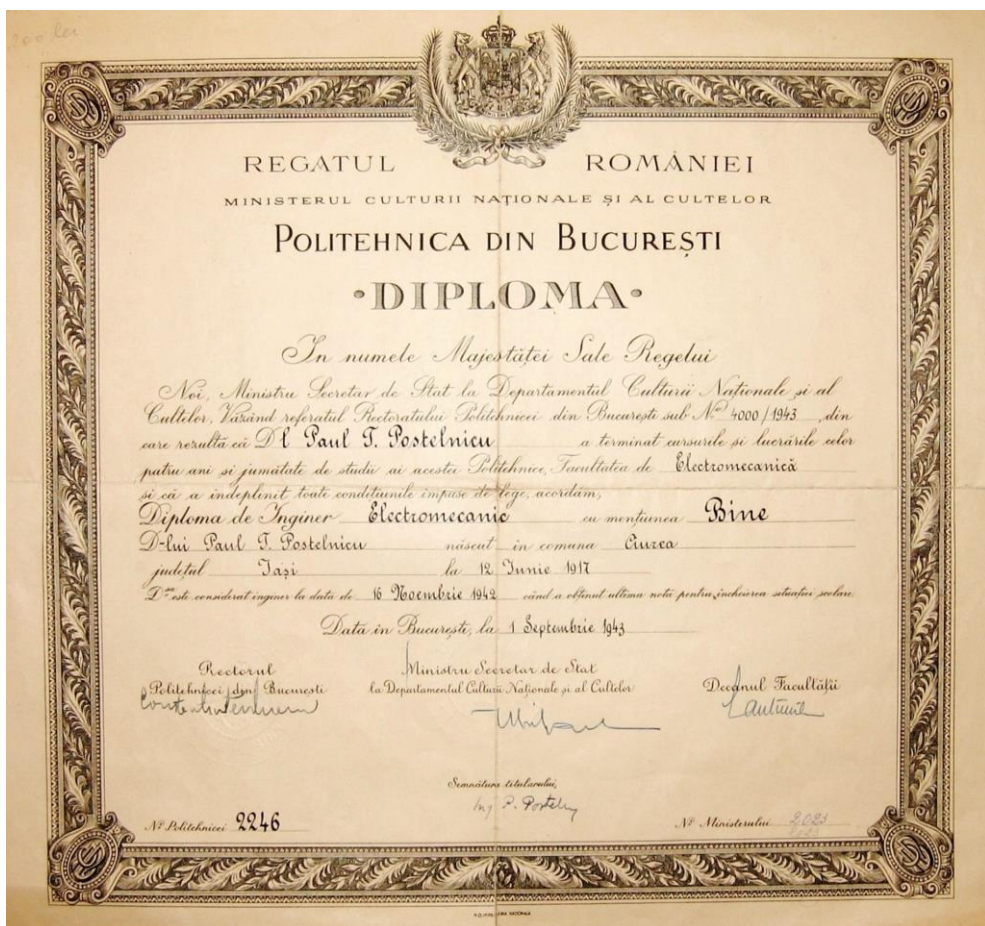 200 lei
REGATUL ROMÂNIEI
MINISTERUL CULTURII NAȚIONALE ȘI AL CULTELOR
POLITEHNICA DIN BUCUREȘTI
·DIPLOMA·
In numele Majestăței Sale Regelui
Noi, Ministru Secretar de Stat la Departamentul Culturii Naționale și al
Cultelor, Văzând referatul Rectoratului Politehnicei din București sub No 4000/1943, din
care rezultă că Dl Paul T. Postelnicu a terminat cursurile și lucrările celor
patru ani și jumătate de studii ai acestei Politehnice, Facultatea de Electromecanică
și că a îndeplinit toate condițiunile impuse de lege, acordăm,
Diploma de Inginer Electromecanic cu mențiunea Bine
D-lui Paul T. Postelnicu născut în comuna Ciurea
județul Iași la 12 Iunie 1917
D-sa este considerat inginer la data de 16 Noembrie 1942 când a obținut ultima notă pentru încheierea situației școlare.
Dată în București, la 1 Septembrie 1943
Rectorul Ministru Secretar de Stat
Politehnicei din București la Departamentul Culturii Naționale și al Cultelor Decanul Facultății
Semnătura titularului,
Ing. P. Posteln
No Politehnicei 2246 No Ministerului 2023